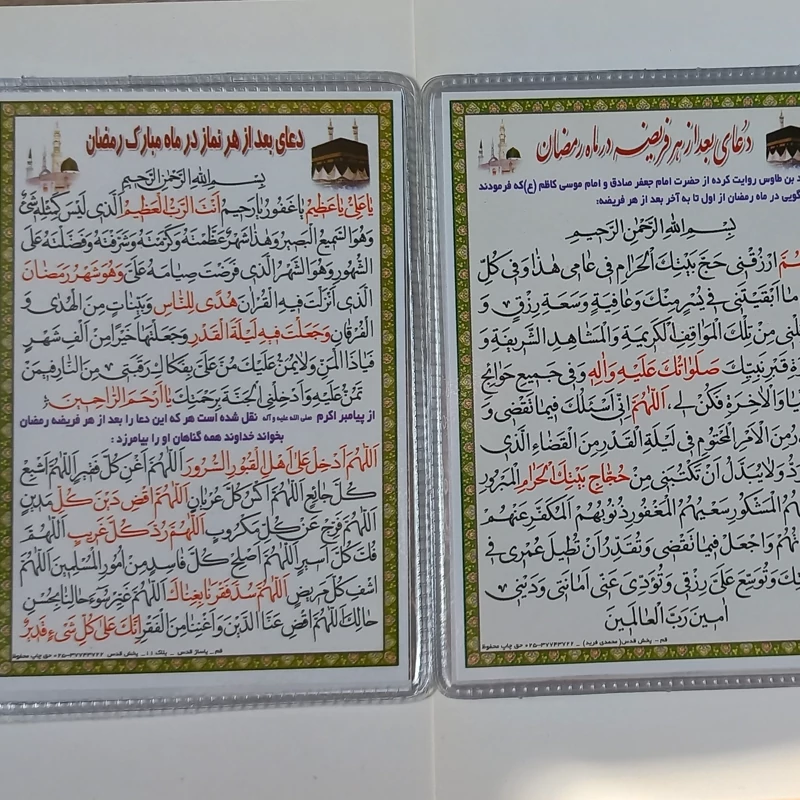 دعای بعد از هر نماز در ماه مبارک رمضان
بِسْمِ اللهِ الرَّحْمٰنِ الرَّحِيمِ
يا عَلِيُّ يا عَظِيمُ يا غَفُورُ يا رَحِيمُ اَنْتَ الرَّبُّ الْعَظِيمُ الَّذي لَيْسَ كَمِثْلِهِ شَيْءٌ
وَهُوَ السَّمِيعُ الْبَصِيرُ وَهٰذا شَهْرٌ عَظَّمْتَهُ وَكَرَّمْتَهُ وَشَرَّفْتَهُ وَفَضَّلْتَهُ عَلَى
الشُّهُورِ وَهُوَ الشَّهْرُ الَّذي فَرَضْتَ صِيامَهُ عَلَيَّ وَهُوَ شَهْرُ رَمَضانَ
الَّذي اَنْزَلْتَ فِيهِ الْقُرْانَ هُدًى لِلنّاسِ وَبَيِّناتٍ مِنَ الْهُدى وَ
الْفُرْقانِ وَجَعَلْتَ فِيهِ لَيْلَةَ الْقَدْرِ وَجَعَلْتَها خَيْرًا مِنْ اَلْفِ شَهْرٍ
فَيا ذَا الْمَنِّ وَلا يُمَنُّ عَلَيْكَ مُنَّ عَلَيَّ بِفَكاكِ رَقَبَتي مِنَ النّارِ فِيمَنْ
تَمُنُّ عَلَيْهِ وَاَدْخِلْنِي الْجَنَّةَ بِرَحْمَتِكَ يا اَرْحَمَ الرّاحِمِينَ
از پیامبر اکرم صلی الله علیه و آله نقل شده است هر که این دعا را بعد از هر فریضه رمضان
بخواند خداوند همه گناهان او را بیامرزد :
اَللّهُمَّ اَدْخِلْ عَلى اَهْلِ الْقُبُورِ السُّرُورَ اَللّهُمَّ اَغْنِ كُلَّ فَقِيرٍ اَللّهُمَّ اَشْبِعْ
كُلَّ جائِعٍ اَللّهُمَّ اكْسُ كُلَّ عُرْيانٍ اَللّهُمَّ اقْضِ دَيْنَ كُلِّ مَدِينٍ
اَللّهُمَّ فَرِّجْ عَنْ كُلِّ مَكْرُوبٍ اَللّهُمَّ رُدَّ كُلَّ غَرِيبٍ اَللّهُمَّ
فُكَّ كُلَّ اَسِيرٍ اَللّهُمَّ اَصْلِحْ كُلَّ فاسِدٍ مِنْ اُمُورِ الْمُسْلِمِينَ اَللّهُمَّ
اشْفِ كُلَّ مَرِيضٍ اَللّهُمَّ سُدَّ فَقْرَنا بِغِناكَ اَللّهُمَّ غَيِّرْ سُوءَ حالِنا بِحُسْنِ
حالِكَ اَللّهُمَّ اقْضِ عَنَّا الدَّيْنَ وَاَغْنِنا مِنَ الْفَقْرِ اِنَّكَ عَلى كُلِّ شَيْءٍ قَدِيرٌ
قم _ پاساژ قدس _ پلاک ۱۱_ پخش قدس ۳۷۷۴۳۷۲۶-۰۲۵ حق چاپ محفوظ
دُعای بعد از هر فریضه در ماه رمضان
د بن طاوس روایت کرده از حضرت امام جعفر صادق و امام موسی کاظم (ع)که فرمودند
گویی در ماه رمضان از اول تا به آخر بعد از هر فریضه:
بِسْمِ اللهِ الرَّحْمٰنِ الرَّحِيمِ
ارْزُقْني حَجَّ بَيْتِكَ الْحَرامِ في عامي هٰذا وَفي كُلِّ
ما اَبْقَيْتَني في يُسْرٍ مِنْكَ وَعافِيَةٍ وَسَعَةِ رِزْقٍ وَ
مِنْ تِلْكَ الْمَواقِفِ الْكَرِيمَةِ وَالْمَشاهِدِ الشَّرِيفَةِ وَ
قَبْرِ نَبِيِّكَ صَلَواتُكَ عَلَيْهِ وَالِهِ وَفي جَمِيعِ حَوائِجِ
وَالْاخِرَةِ فَكُنْ لي، اَللّهُمَّ اِنّي اَسْئَلُكَ فيما تَقْضي وَ
مِنَ الْاَمْرِ الْمَحْتُومِ في لَيْلَةِ الْقَدْرِ مِنَ الْقَضاءِ الَّذي
وَلا يُبَدَّلُ اَنْ تَكْتُبَني مِنْ حُجّاجِ بَيْتِكَ الْحَرامِ الْمَبْرُورِ
الْمَشْكُورِ سَعْيُهُمُ الْمَغْفُورِ ذُنُوبُهُمُ الْمُكَفَّرِ عَنْهُمْ
وَاجْعَلْ فيما تَقْضي وَتُقَدِّرُ اَنْ تُطِيلَ عُمْري في
وَتُوَسِّعَ عَلَيَّ رِزْقي وَتُؤَدِّيَ عَنّي اَمانَتي وَدَيْني
امِينَ رَبَّ الْعالَمِينَ
قم- پخش قدس(محمدی فرید) ـ ۳۷۷۴۳۷۲۶-۰۲۵ حق چاپ محفوظ